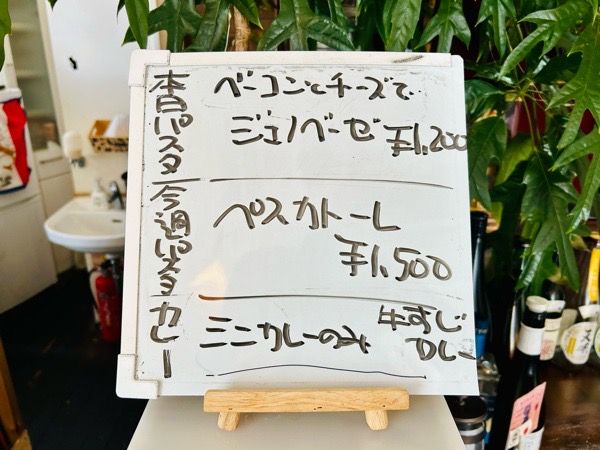 本日パスタ
ベーコンとチーズで
ジェノベーゼ ¥1,200
今週パスタ
ペスカトーレ
¥1,500
カレー
ミニカレーのみ
牛すじ
カレー